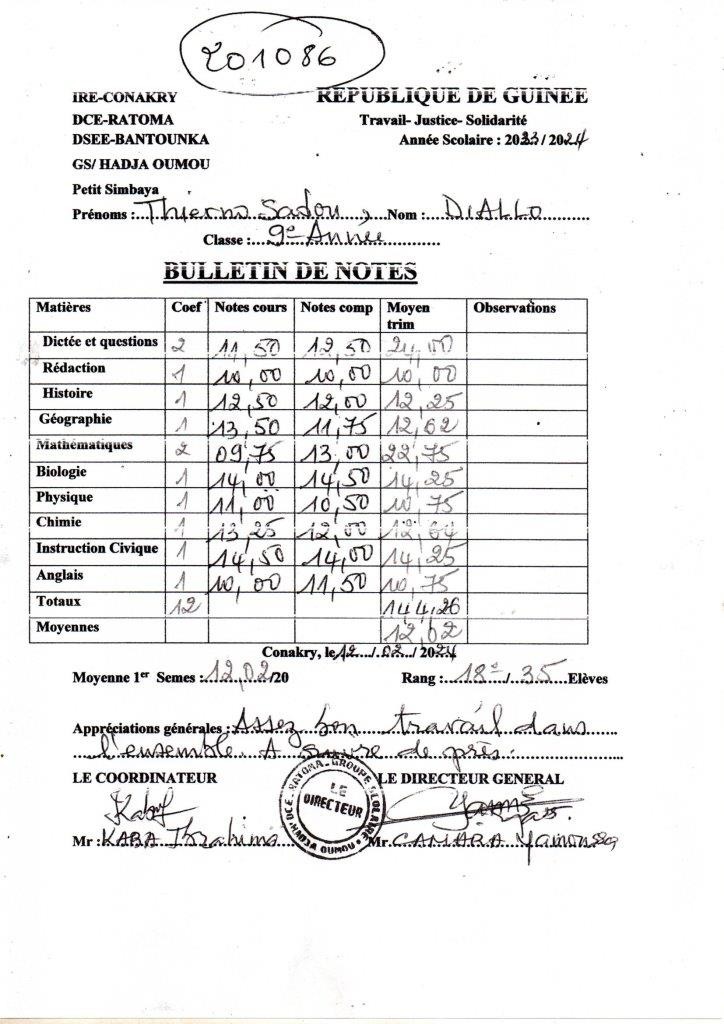 201086
IRE-CONAKRY REPUBLIQUE DE GUINEE
DCE-RATOMA Travail- Justice- Solidarité
DSEE-BANTOUNKA Année Scolaire : 2023/ 2024
GS/ HADJA OUMOU
Petit Simbaya
Prénoms :...Thierno Sadou..., Nom :...DIALLO...
Classe :...9e Année...
BULLETIN DE NOTES
Matières Coef Notes cours Notes comp Moyen trim Observations
Dictée et questions 2 11,50 12,50 24,00
Rédaction 1 10,00 10,00 10,00
Histoire 1 12,50 12,00 12,25
Géographie 1 13,50 11,75 12,62
Mathématiques 2 09,75 13,00 22,75
Biologie 1 14,00 14,50 14,25
Physique 1 11,00 10,50 10,75
Chimie 1 13,25 12,00 12,64
Instruction Civique 1 14,50 14,00 14,25
Anglais 1 10,00 11,50 10,75
Totaux 12 144,26
Moyennes 12,02
Conakry, le 12.../...02.../ 2024
Moyenne 1er Semes :..12,02../20 Rang :...18e.../...35...Elèves
Appréciations générales : Assez bon travail dans
l'ensemble. A suivre de près.
LE COORDINATEUR LE DIRECTEUR GENERAL
LE DIRECTEUR
DCE-RATOMA-GROUPE SCOLAIRE HADJA OUMOU
Mr :.KABA Ibrahima Mr.CAMARA